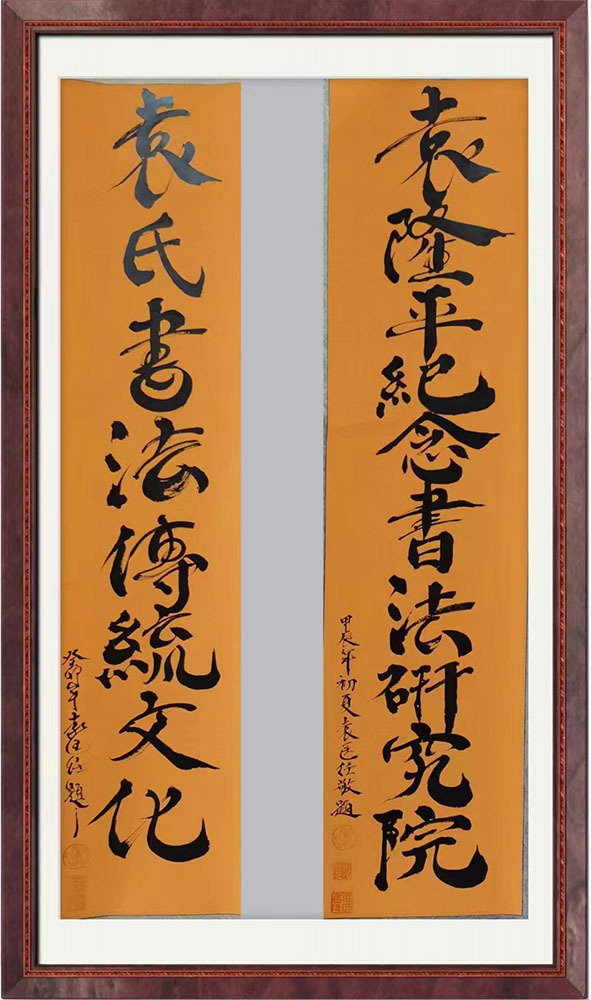 袁隆平紀念書法研究院
甲辰年初夏袁
敬題
袁氏書法傳統文化
癸卯年
題